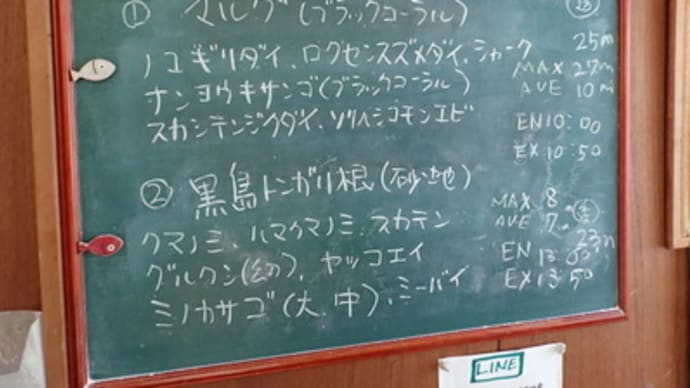 ① マルグ(ブラックコーラル)
ノコギリダイ、ロクセンスズメダイ、シャーク
ナンヨウキサンゴ(ブラックコーラル)
スカシテンジクダイ、ソリハシコモンエビ
25m
MAX 27m
AVE 10m
EN 10:00
EX 10:50
② 黒島トンガリ根(砂地)
クマノミ、ハマクマノミ、スカテン
グルクン(幼)、ヤッコエイ
ミノカサゴ(大、中)、ミーバイ
MAX 8m
AVE 7m
23m
EN 13:03
EX 13:50
LINE